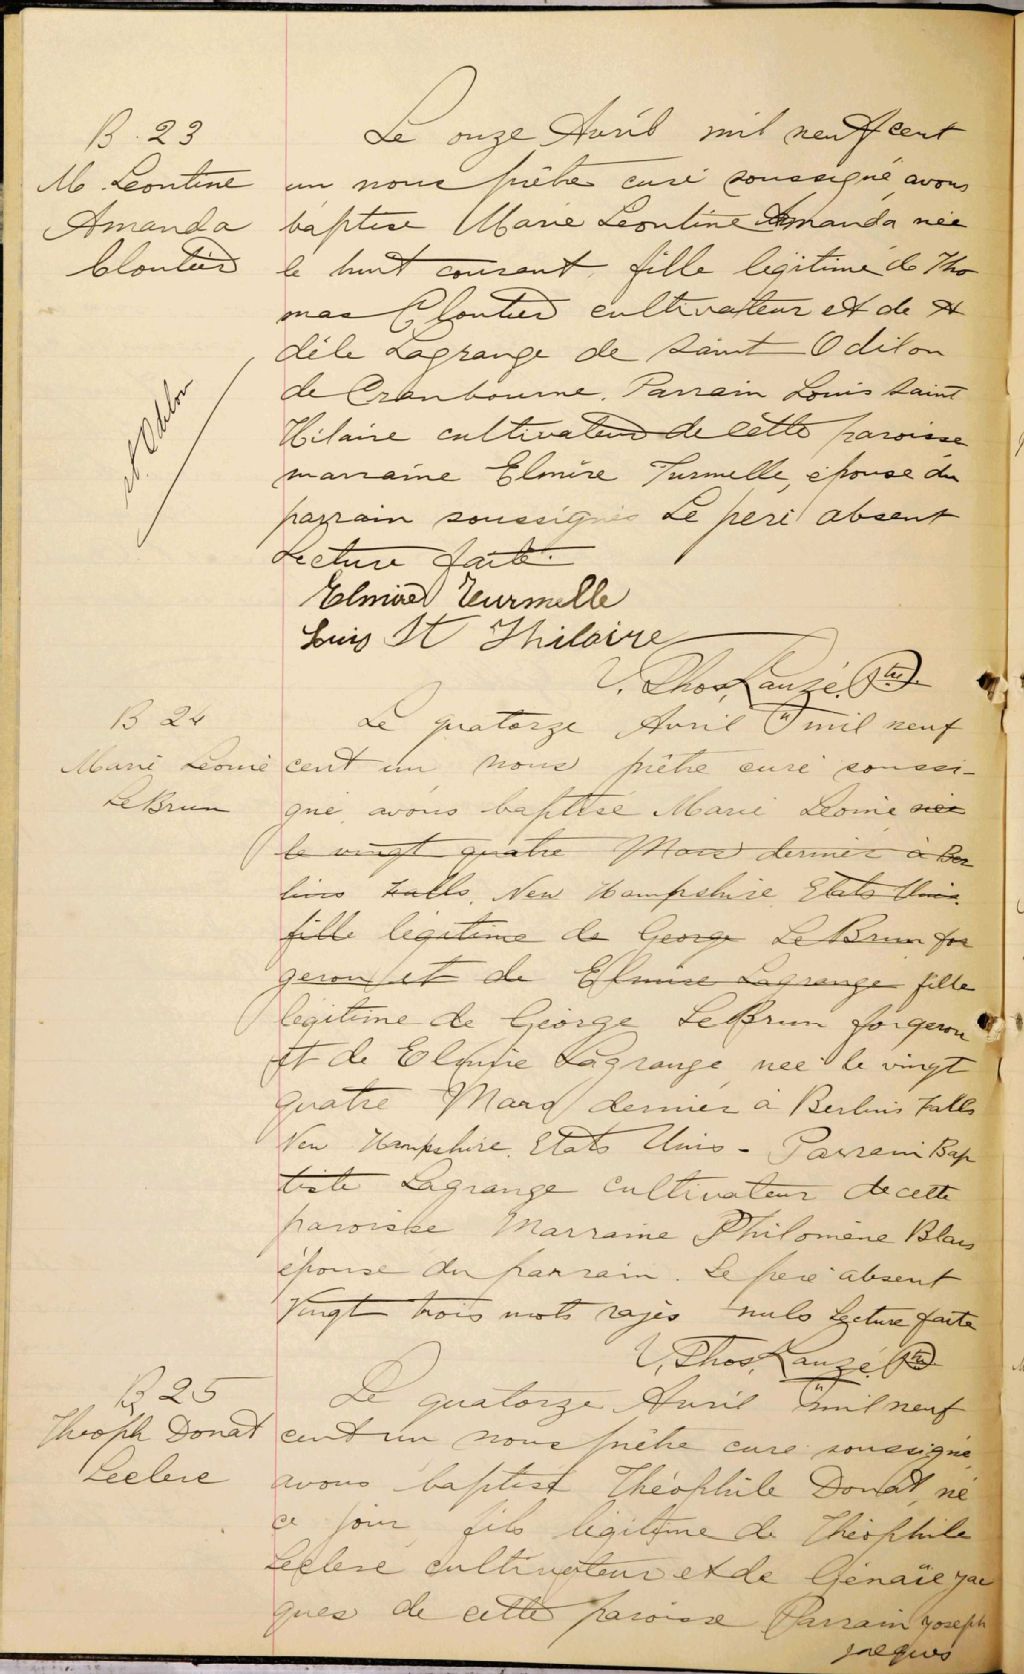 B. 23
M. Leontine
Amanda
Cloutier
st. Odilon
Le onze Avril mil neuf cent
un nous prêtre curé soussigné, avons
baptisé Marie Leontine Amanda née
le huit courant, fille légitime de Tho
mas Cloutier cultivateur et de A
dèle Lagrange de Saint Odilon
de Cranbourne. Parrain Louis Saint
Hilaire cultivateur de cette paroisse
marraine Elmire Turmelle, épouse du
parrain soussignés Le père absent
Lecture faite.
Elmire Turmelle
Louis St Hilaire
V. Thos. Lauzé. Ptre.
B 24
Marie Leonie
LeBrun
Le quatorze Avril mil neuf
cent un nous prêtre curé soussi-
gné, avons baptisé Marie Léonie née
le vingt quatre Mars dernier à Ber
lins Falls, New Hampshire, Etats Unis.
fille légitime de George LeBrun for
geron et de Elmire Lagrange fille
légitime de George LeBrun forgeron
et de Elmire Lagrange, née le vingt
quatre Mars dernier à Berlins Falls
New Hampshire. Etats Unis - Parrain Bap
tiste Lagrange cultivateur de cette
paroisse Marraine Philomène Blais
épouse du parrain. Le père absent
Vingt trois mots rayés nuls Lecture faite
V. Thos. Lauzé. Ptre
B 25
Theoph Donat
Leclerc
Le quatorze Avril mil neuf
cent un nous prêtre curé soussigné
avons baptisé Théophile Donat, né
ce jour, fils légitime de Théophile
Leclerc cultivateur et de Génaïe Jac
ques de cette paroisse Parrain Joseph
Jacques